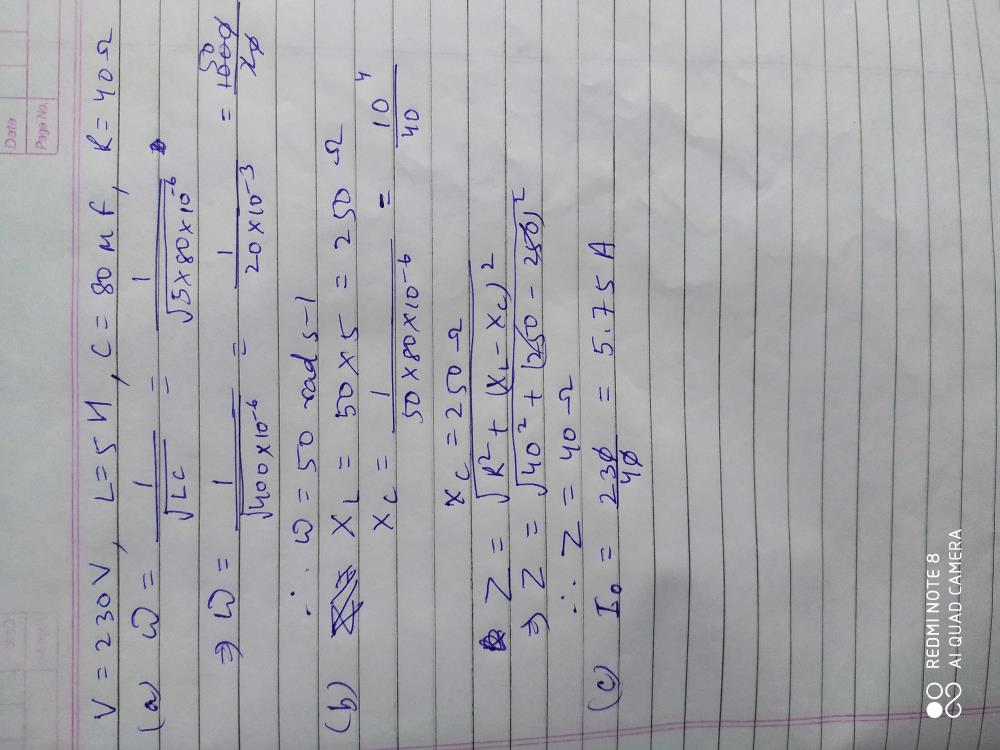 Date
Page No.
V = 230V, L = 5H, C = 80 μf, R = 40Ω
(a) ω = 1/√LC = 1/√5×80×10⁻⁶
⇒ ω = 1/√400×10⁻⁶ = 1/20×10⁻³ = 1000/20 50
∴ ω = 50 rad s-1
(b) X_L = 50×5 = 250 Ω
X_C = 1/50×80×10⁻⁶ = 10⁴/40
X_C = 250Ω
Z = √R² + (X_L - X_C)²
⇒ Z = √40² + (250 - 250)²
∴ Z = 40Ω
(c) I₀ = 230/40 = 5.75 A
REDMI NOTE 8
AI QUAD CAMERA